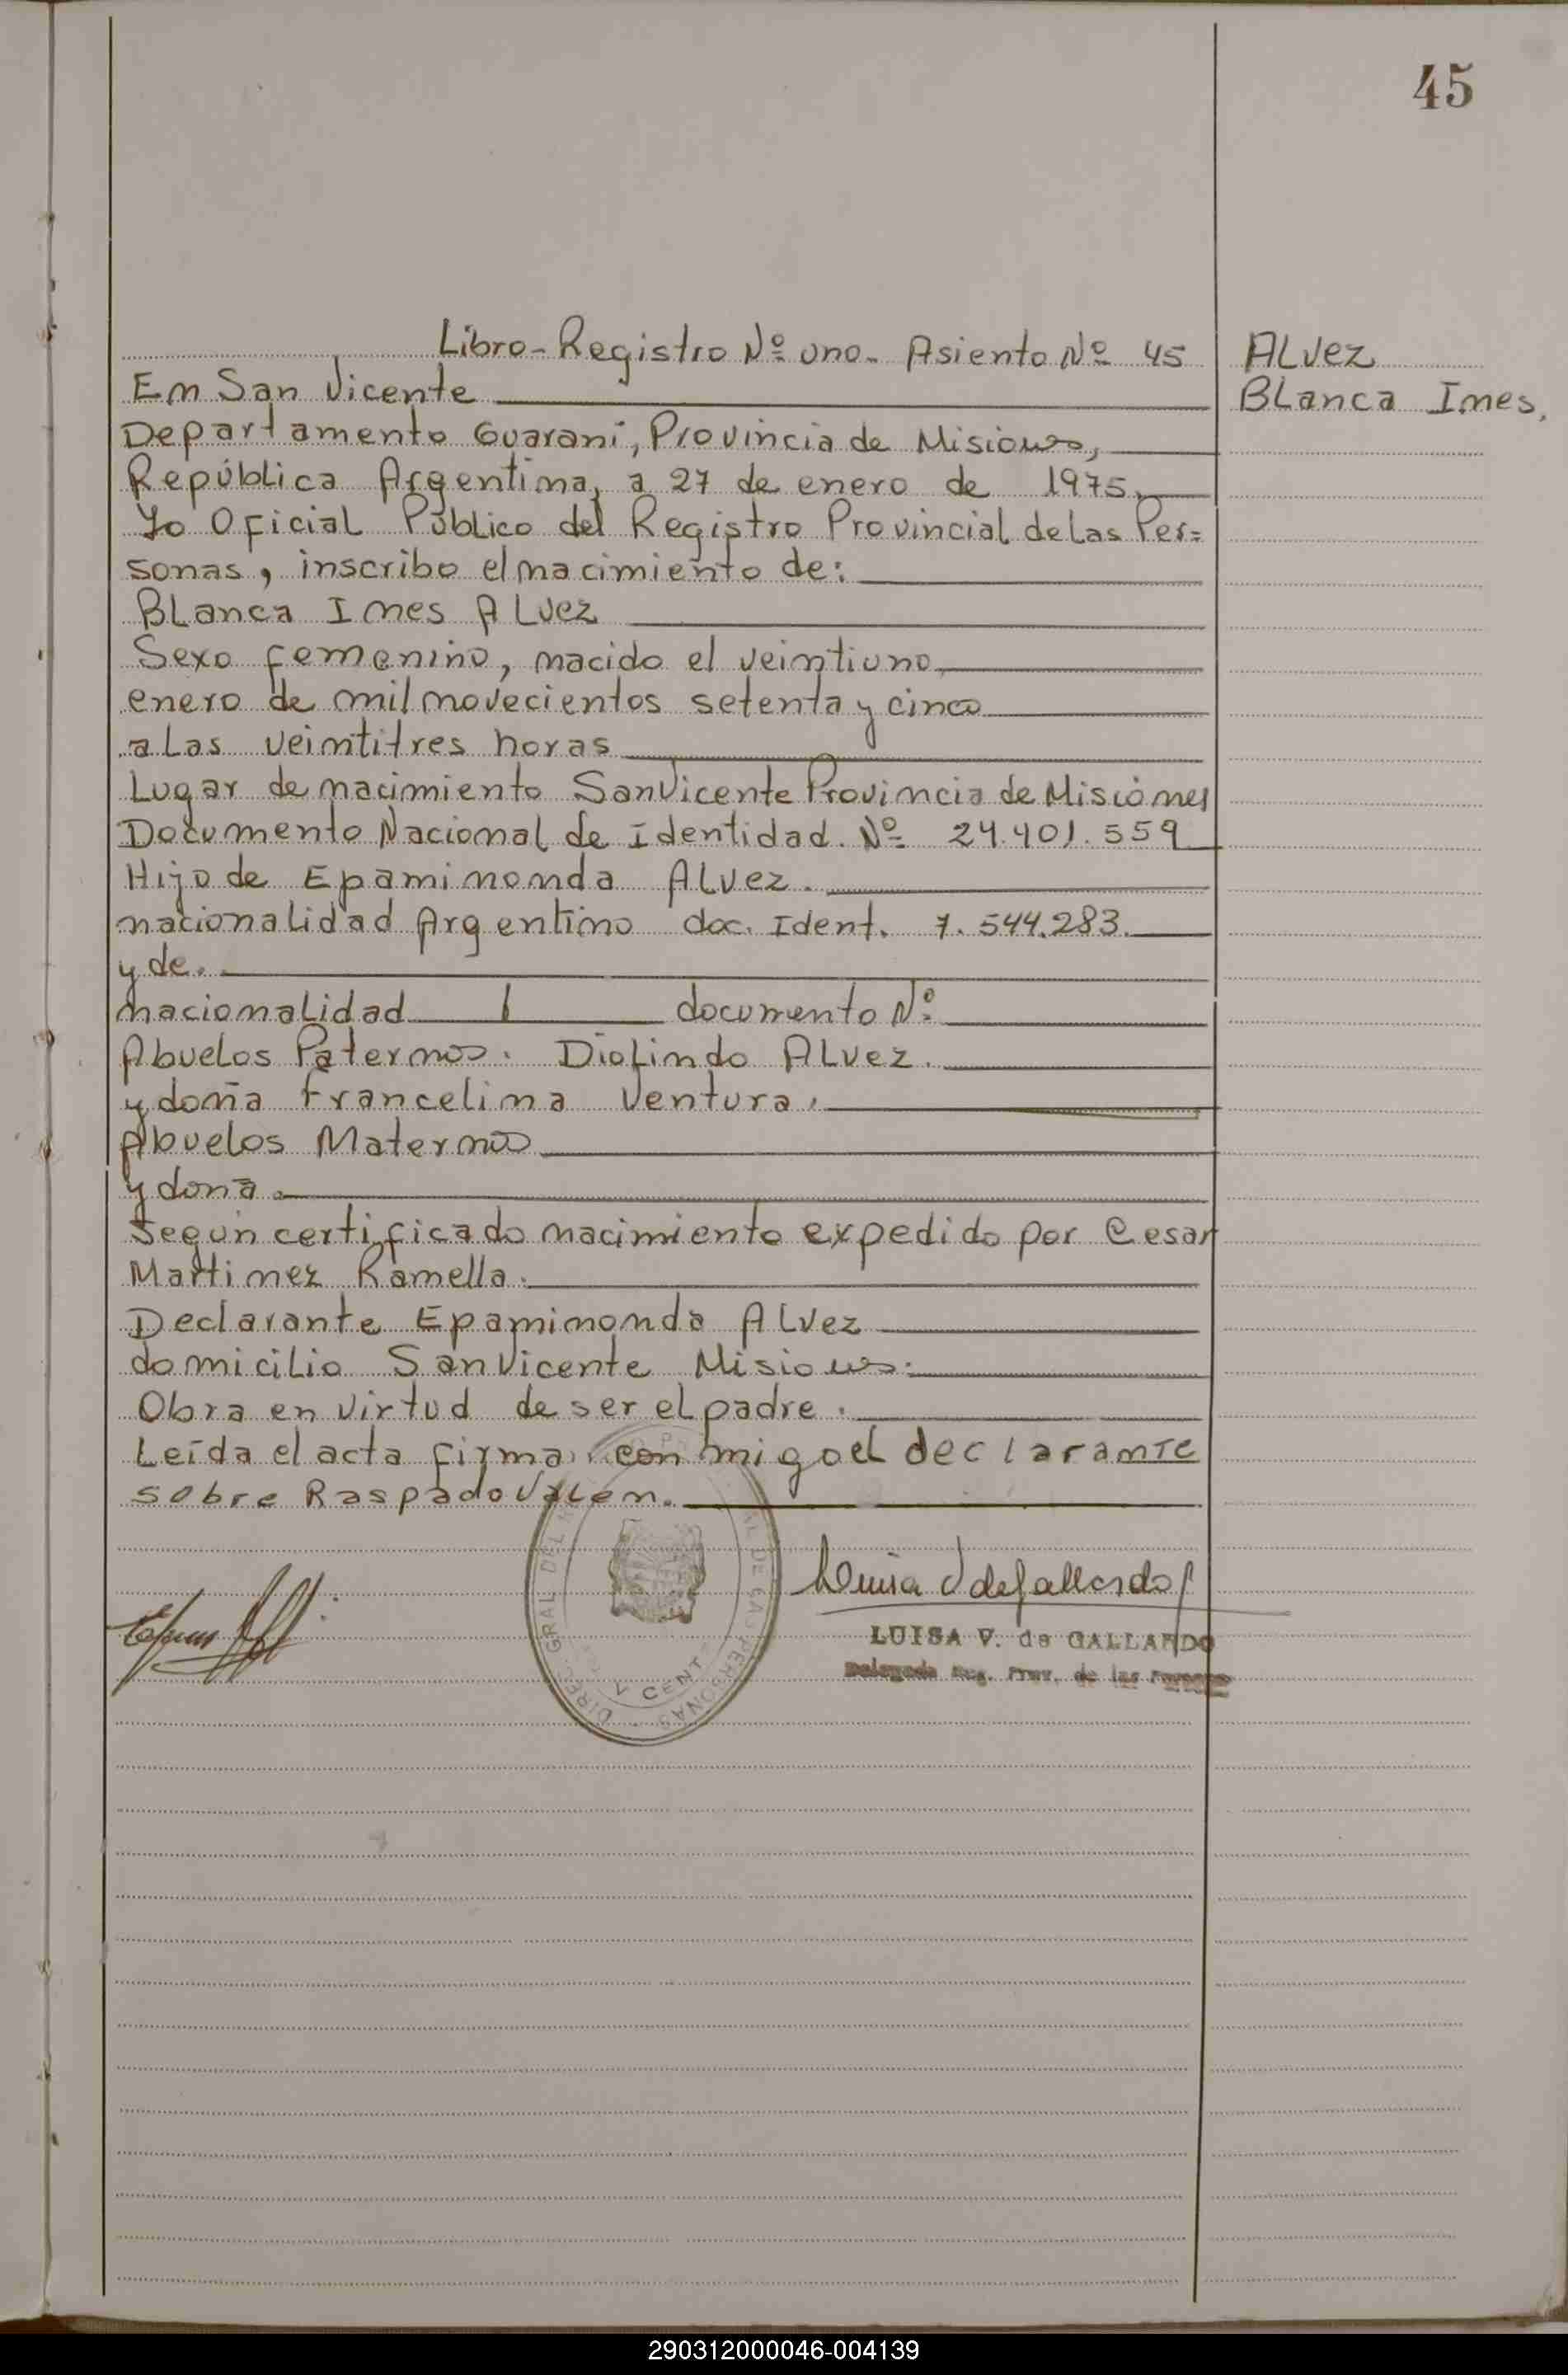 45
Libro-Registro Nº uno. Asiento Nº 45
ALvez
Blanca Ines.
En San Vicente
Departamento Guaraní, Provincia de Misiones,
República Argentina, a 27 de enero de 1975.
Yo Oficial Público del Registro Provincial de Las Per=
sonas, inscribo el nacimiento de:
BLanca Ines ALvez
Sexo femenino, nacido el veintiuno
enero de mil novecientos setenta y cinco
a Las veintitres horas
Lugar de nacimiento San Vicente Provincia de Misiónes
Documento Nacional de Identidad. Nº 24.401.559
Hijo de Epaminonda ALvez.
nacionalidad Argentino doc. Ident. 7.544.283.
y de.
nacionalidad documento Nº
Abuelos Paternos. Diolindo ALvez.
y doña Francelina Ventura.
Abuelos Maternos
y doña.
Según certificado nacimiento expedido por Cesar
Martinez Ramella.
Declarante Epaminonda ALvez
domicilio San Vicente Misiones.
Obra en virtud de ser el padre.
Leída el acta firma con migo el declarante
sobre Raspado Valen.
DIREC. GRAL. DEL DE LAS PERSONAS
V CENT
Luisa V de Gallardo
LUISA V. de GALLARDO
Delegada Reg. Prov. de las Personas
290312000046-004139